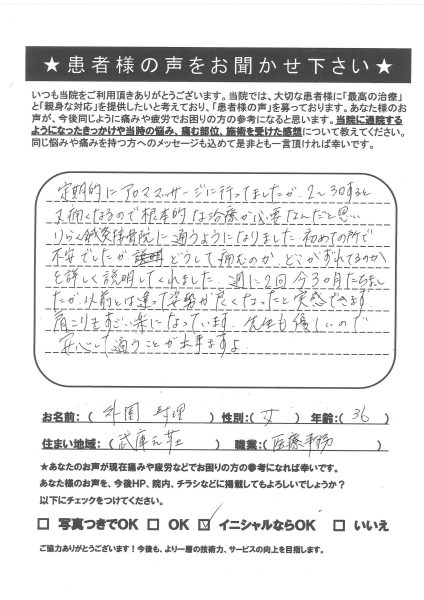 ★患者様の声をお聞かせ下さい★
いつも当院をご利用頂きありがとうございます。当院では、大切な患者様に「最高の治療」
と「親身な対応」を提供したいと考えており、「患者様の声」を募っております。あなた様のお
声が、今後同じように痛みや疲労でお困りの方の参考になると思います。当院に通院する
ようになったきっかけや当時の悩み、痛む部位、施術を受けた感想について教えてください。
同じ悩みや痛みを持つ方へのメッセージも込めて是非とも一言頂ければ幸いです。
定期的にアロママッサージに行ってましたが、2〜3日すると
又痛くなるので根本的な治療が必要なんだと思い
りらく鍼灸整骨院に通うようになりました 初めての所で
不安でしたが どうして痛むのか どこがずれてるのか
を詳しく説明してくれました 週に2回 今3ヵ月たちまし
たが以前とは違って姿勢が良くなったと実感できます
肩こりもすごい楽になっています。先生も優しいので
安心して通うことが出来ますよ
お名前：（ 外園 ）性別：（ 女 ）年齢：（ 36 ）
住まい地域：（ 武庫元町 ）職業：（ 医療事務 ）
★あなたのお声が現在痛みや疲労などでお困りの方の参考になれば幸いです。
あなた様のお声を、今後HP、院内、チラシなどに掲載してもよろしいでしょうか？
以下にチェックをつけてください。
□ 写真つきでOK □ OK ☑ イニシャルならOK □ いいえ
ご協力ありがとうございます！今後も、より一層の技術力、サービスの向上を目指します。